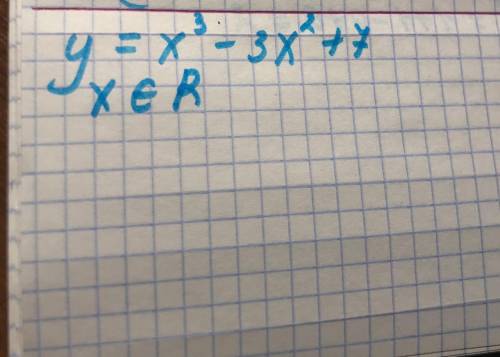 y = x³ - 3x² + 7
x ∈ R